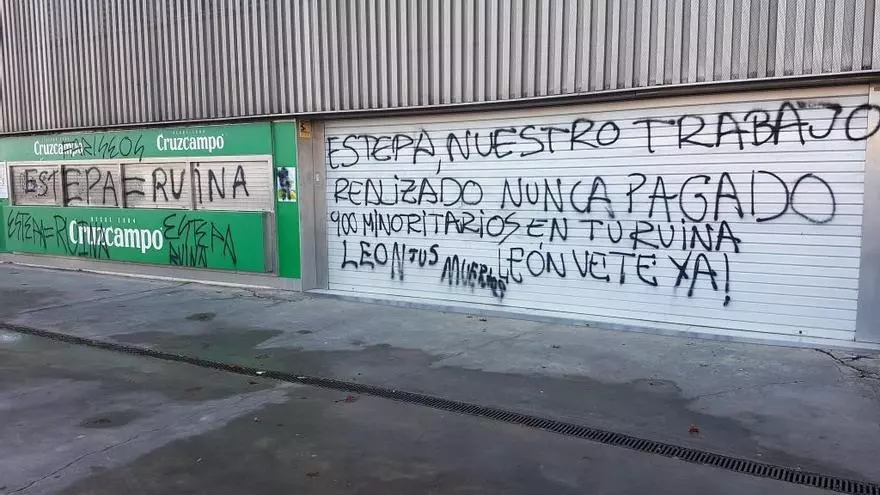 DESDE 1904
Cruzcampo
MARISEOS
DESDE 1904
Cruzcampo
ESTEPA = RUINA
ESTEPA RUINA
Cruzcampo
DESDE 1904
ESTEPA
RUINA
ESTEPA, NUESTRO TRABAJO
REALIZADO NUNCA PAGADO
400 MINORITARIOS EN TU RUINA
LEON TUS MUERTOS LEÓN VETE YA!